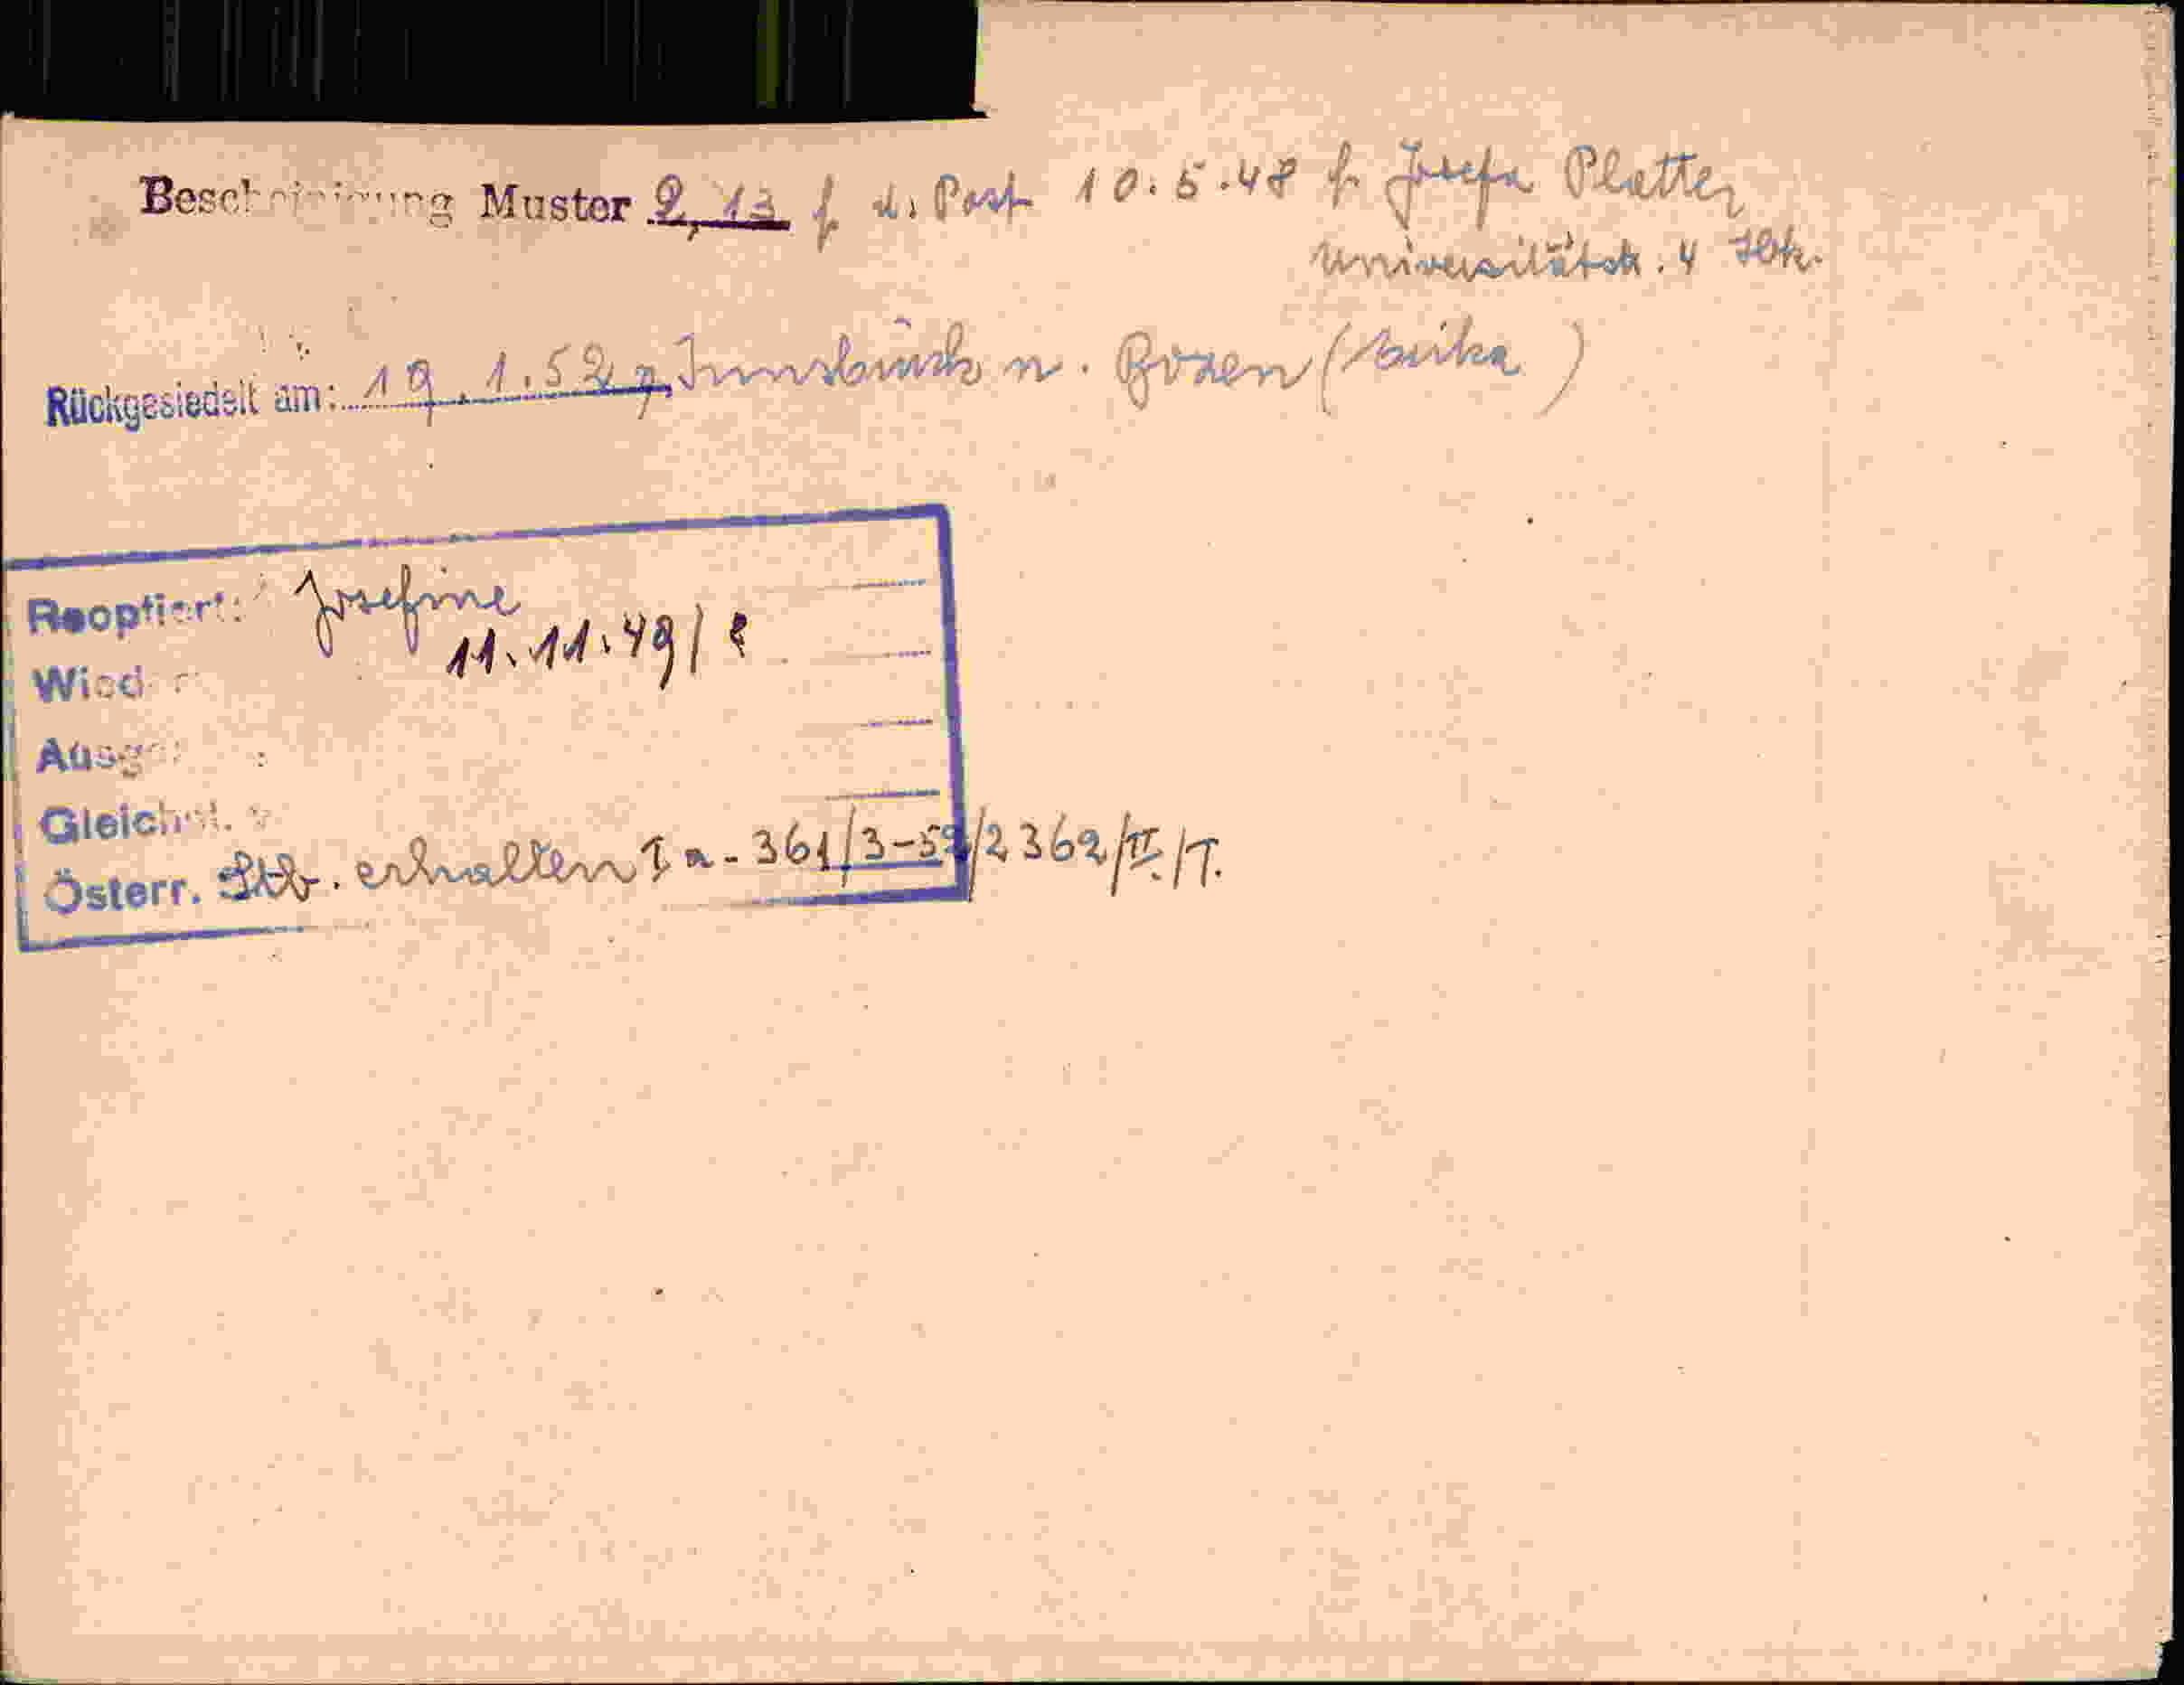 Bescheinigung Muster 2, 13 f. d. Post 10.5.48 f. Josefa Platter
Universitätstr. 4 Ibk.
Rückgesiedelt am: 19.1.52 v. Innsbruck n. Bozen
Reoptiert: Josefine
11.11.49/
Wied
Ausg :
Gleich
Österr. Stb. erhalten I a - 361/3-52/2362/II/T.